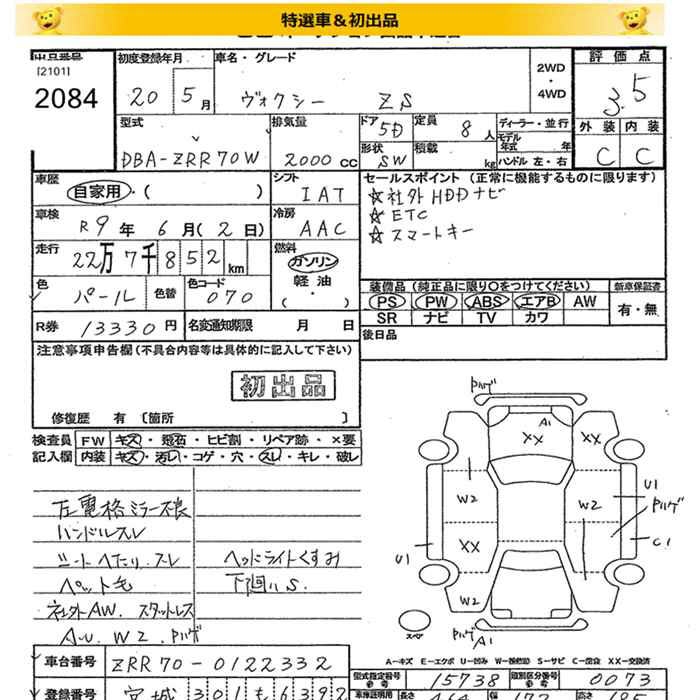 特選車＆初出品
出品番号 初度登録年月 車名・グレード 評価点
[2101]
2084
20 5月 ヴォクシー ZS 2WD・4WD 3.5
型式 排気量 ドア 5D 定員 8人 ディーラー・並行 外装 内装
モデル年式 年
DBA-ZRR70W 2000cc 形状 SW 積載 kg ハンドル 左・右 C C
車歴 シフト セールスポイント (正常に機能するものに限ります)
自家用・( ) IAT ☆社外HDDナビ
車検 冷房 ☆ETC
R9年 6月 (2日) AAC ☆スマートキー
走行 燃料
22万7千852km ガソリン
軽油
( ・ )
色 パール 色替 色コード 070
装備品 (純正品に限り〇をつけてください) 新車保証書
PS PW ABS エアB AW 有・無
SR ナビ TV カワ
R券 13330円 名変通知期限 月 日 後日品
注意事項申告欄 (不具合内容等は具体的に記入して下さい)
初出品
修復歴 有 〔箇所 〕
検査員 FW キズ・飛石・ヒビ割・リペア跡・×要
記入欄 内装 キズ・汚レ・コゲ・穴・スレ・キレ・破レ
左電格ミラー不良
ハンドルスレ
シートヘタリ、スレ ヘッドライトくすみ
ペット毛 下回りS.
社外AW. スタットレス
A.U. W2. Pハゲ
Pハゲ
A1
XX XX
W2 W2 U1
Pハゲ
XX C1
U1
W2
スペア
Pハゲ A1
A-キズ E-エクボ U-凹み W-補修跡 S-サビ C-腐食 XX-交換済
車台番号 ZRR70-0122332 型式指定番号 参考 15738 類別区分番号 参考 0073
登録番号 宮城 301 も 6392